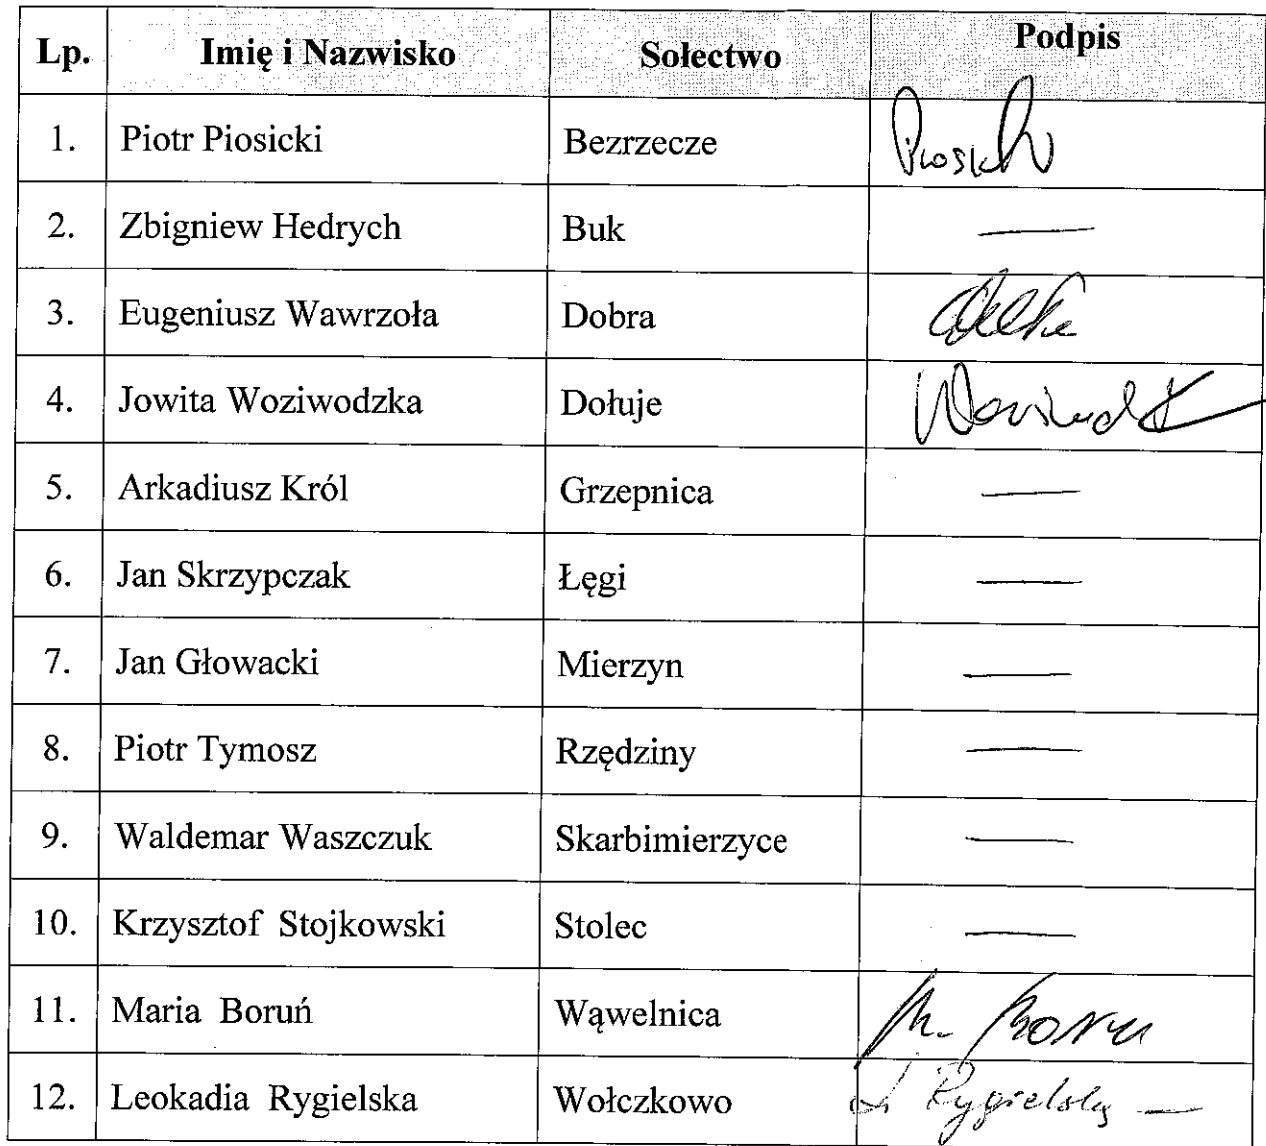 Lp. Imię i Nazwisko Sołectwo Podpis
1. Piotr Piosicki Bezrzecze
2. Zbigniew Hedrych Buk —
3. Eugeniusz Wawrzoła Dobra
4. Jowita Woziwodzka Dołuje
5. Arkadiusz Król Grzepnica —
6. Jan Skrzypczak Łęgi —
7. Jan Głowacki Mierzyn —
8. Piotr Tymosz Rzędziny —
9. Waldemar Waszczuk Skarbimierzyce —
10. Krzysztof Stojkowski Stolec —
11. Maria Boruń Wąwelnica M. Boruń
12. Leokadia Rygielska Wołczkowo L. Rygielska —